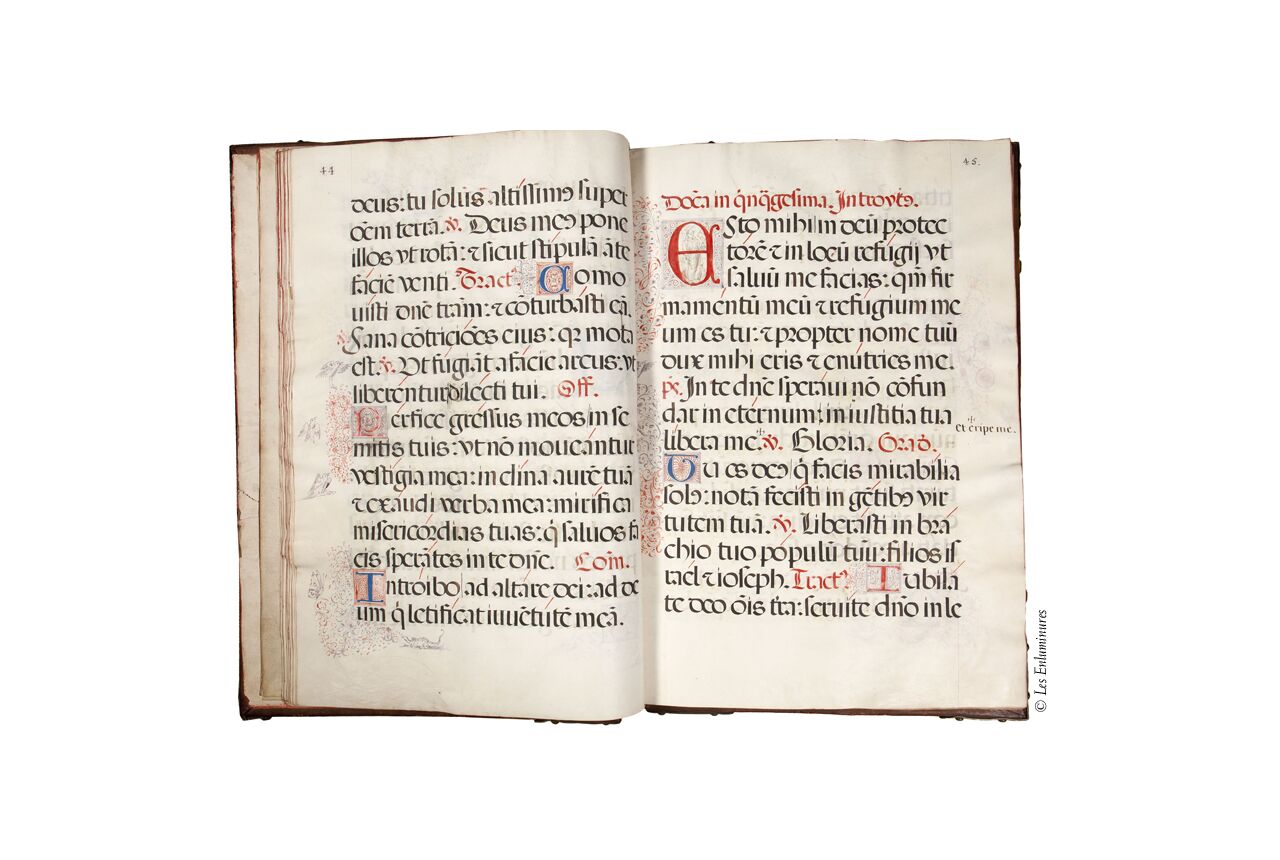 44
deus: tu solus̄ altissimꝯ super
oēm terrā. ℣. Deus meꝯ pone
illos vt rotā: ⁊ sicut stipulā āte
faciē venti. Tractꝰ. Como
uisti dnē trām: ⁊ cōturbasti eā.
Sana cōtricioēs eius: qꝛ mota
est. ℣. Vt fugiāt a facie arcus: vt
liberentur dilecti tui. Off.
Perfice gressus meos in se
mitis tuis: vt nō moueantur
vestigia mea: inclina aurē tuā
⁊ exaudi verba mea: mirifica
misericordias tuas: q̇ saluos fa
cis sperātes in te dnē. Com̄.
Introibo ad altare dei: ad de
um q̇ letificat iuuētutē meā.
45.
Doc̄a in q̇nq̄gesima. Introytꝯ.
Esto mihi in deū protec
torē ⁊ in locū refugij vt
saluū me facias: qm̄ fir
mamentū meū ⁊ refugium me
um es tu: ⁊ propter nomē tuū
dux mihi eris ⁊ enutries me.
ps̄. In te dnē speraui nō cōfun
dar in eternum: in iustitia tua
libera me. ℣. Gloria. Grad̄.
et eripe me.
Tu es deꝯ q̇ facis mirabilia
solꝯ: notā fecisti in gētibꝯ vir
tutem tuā. ℣. Liberasti in bra
chio tuo populū tuū: filios is
rael ⁊ ioseph. Tractꝰ. Iubila
te deo oīs tr̄a: seruite dn̄o in le
© Les Enluminures